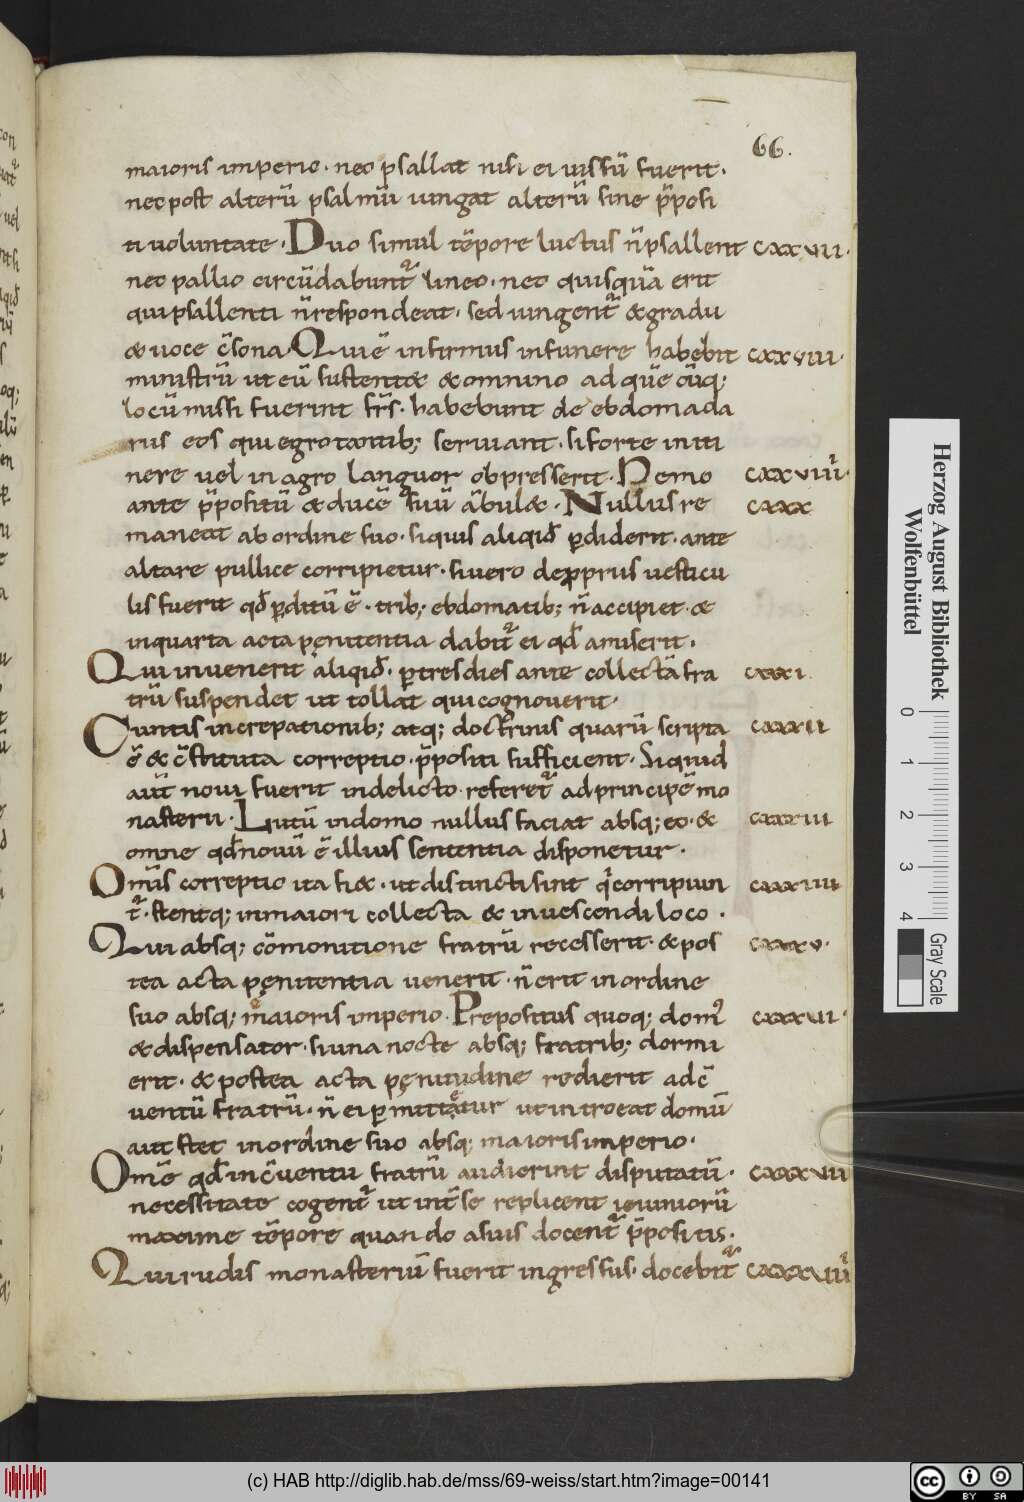 66.
maioris imperio. nec psallat nisi ei iussū fuerit.
nec post alterū psalmū iungat alterū sine p̄posi
ti voluntate. Duo simul tēpore luctus ñ psallent cxxvii.
nec pallio circūdabunt᷑ lineo. nec quisquā erit
qui psallenti ñ respondeat. sed iungent᷑ & gradu
& uoce c̄sona. Qui ē infirmus in funere habebit cxxviii.
ministrū ut eū sustentet & omnino ad quē cūq;
locū missi fuerint frs̄. habebunt de ebdomada
rus eos qui egrotantib; seruiant. si forte in iti
nere uel in agro languor obpresserit. Nemo cxxviiii.
ante p̄positū & ducē suū ābulet. Nullus re cxxx
maneat ab ordine suo. siquis aliqid ꝑdiderit. ante
altare pullice corripietur. si uero de ꝓprius uesticu
lis fuerit qđ ꝑditū ē. trib; ebdomatib; ñ accipiet. &
in quarta acta penitentia dabit᷑ ei qđ amiserit.
Qui inuenerit aliqid. ꝑ tres dies ante collectā fra cxxxi.
trū suspendet ut tollat qui cognouerit.
Cuntis increpationib; atq; doctrinis quarū scripta cxxxii
ē & c̄stituta correptio. p̄positi sufficient. Si quid
aut noui fuerit in delicto. referet᷑ ad principē mo
nasterii. Litū in domo nullus faciat absq; eo. & cxxxiii
omne qđ nouū ē illius sententia disponetur.
Omīs correptio ita fiet. ut distincti sint qi corripiun cxxxiiii
t᷑. stentq; in maiori collecta & in uescendi loco.
Qui absq; cōmonitione fratrū recesserit. & pos cxxxv.
tea acta penitentia uenerit. ñ erit in ordine
suo absq; maioris imperio. Prepositus quoq; dom᷒ cxxxvi.
& dispensator. si una nocte absq; fratrib; dormi
erit. & postea acta penitudine redierit ad c̄
uentū fratrū. ñ ei ꝑmittatur ut introeat domū
aut stet in ordine suo absq; maioris imperio.
Omē qđ in c̄uentu fratrū audierint disputatū. cxxxvii
necessitate cogent᷑ ut int̄ se replicent ieiuniorū
maxime tēpore quando a suis docent᷑ p̄positis.
Qui rudis monasteriū fuerit ingressus. docebit᷑ cxxxviii
Herzog August Bibliothek
Wolfenbüttel
0 1 2 3 4
Gray Scale
(c) HAB http://diglib.hab.de/mss/69-weiss/start.htm?image=00141
cc BY SA